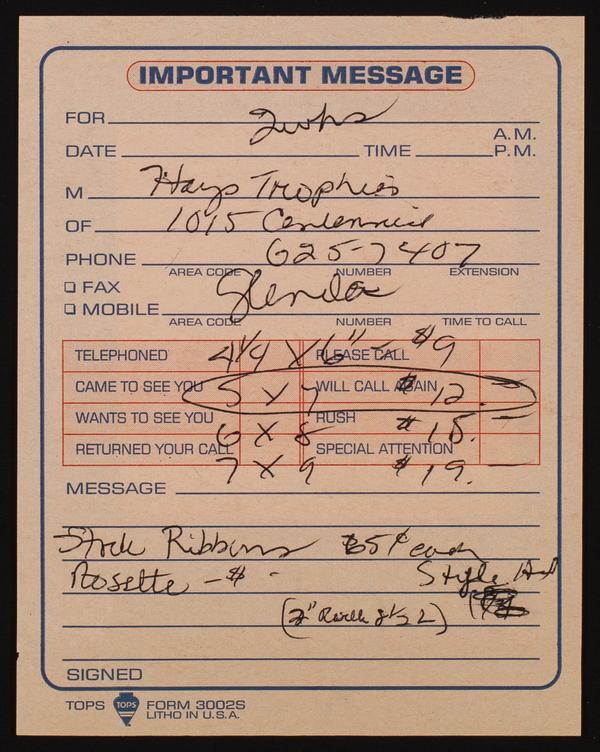 IMPORTANT MESSAGE
FOR
A.M.
DATE TIME P.M.
M Hays Trophies
OF 1015 Centennial
PHONE 625-7407
AREA CODE NUMBER EXTENSION
FAX Glenda
MOBILE
AREA CODE NUMBER TIME TO CALL
TELEPHONED 4 1/4 X 6" - $9 PLEASE CALL
CAME TO SEE YOU 5 X 7 WILL CALL AGAIN $12.
WANTS TO SEE YOU 6 X 8 RUSH $15.
RETURNED YOUR CALL 7 X 9 SPECIAL ATTENTION $19.
MESSAGE
Stock Ribbons 65¢ each
Rosette - $ - Style
(2" 8 1/2 L)
SIGNED
TOPS TOPS FORM 3002S
LITHO IN U.S.A.